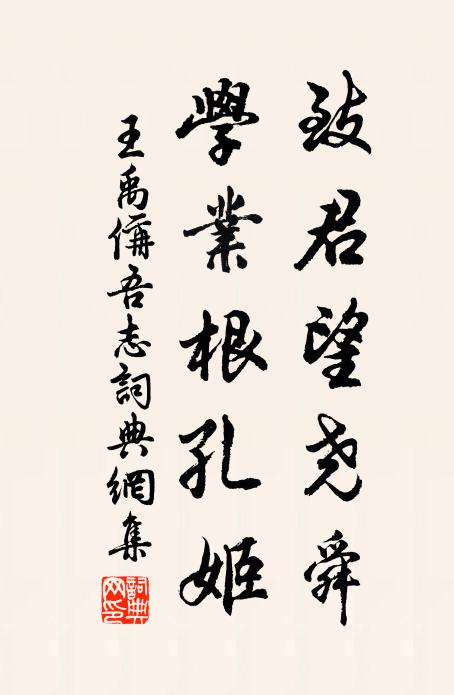 致君望尧舜
學業根孔姬
王禹偁吾志詞典網集
詞典網印